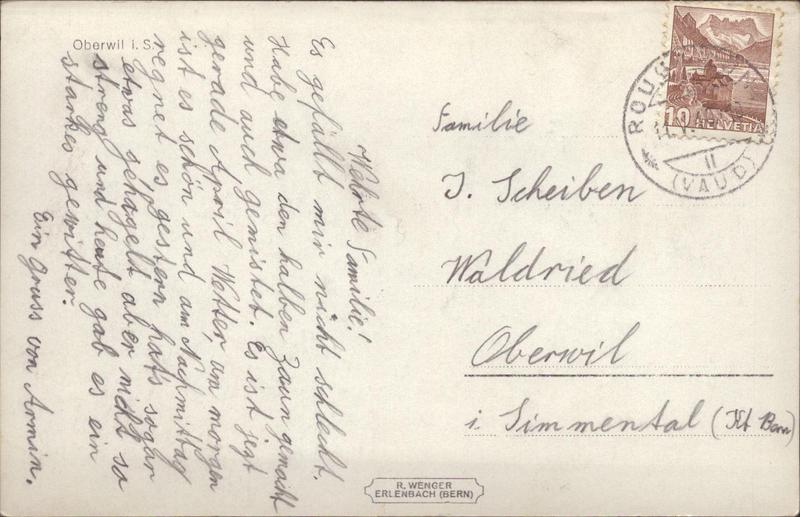 Oberwil i. S.
Werte Familie!
Es gefällt mir nicht schlecht.
Habe etwa den halben Zaun gemacht
und auch gemistet. Es ist jezt
gerade April Wetter, am morgen
ist es schön und am Nachmittag
regnet es gestern hats sogar
etwas gehagelt aber nicht so
streng und heute gab es ein
starkes gewitter.
Ein Gruss von Armin.
10 HELVETIA
ROUG
II
(VAUD)
Familie
J. Scheiben
Waldried
Oberwil
i. Simmental (Kt Bern)
R. WENGER
ERLENBACH (BERN)